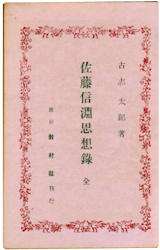 古志太郎著
佐藤信淵思想錄 全
教材社刊行